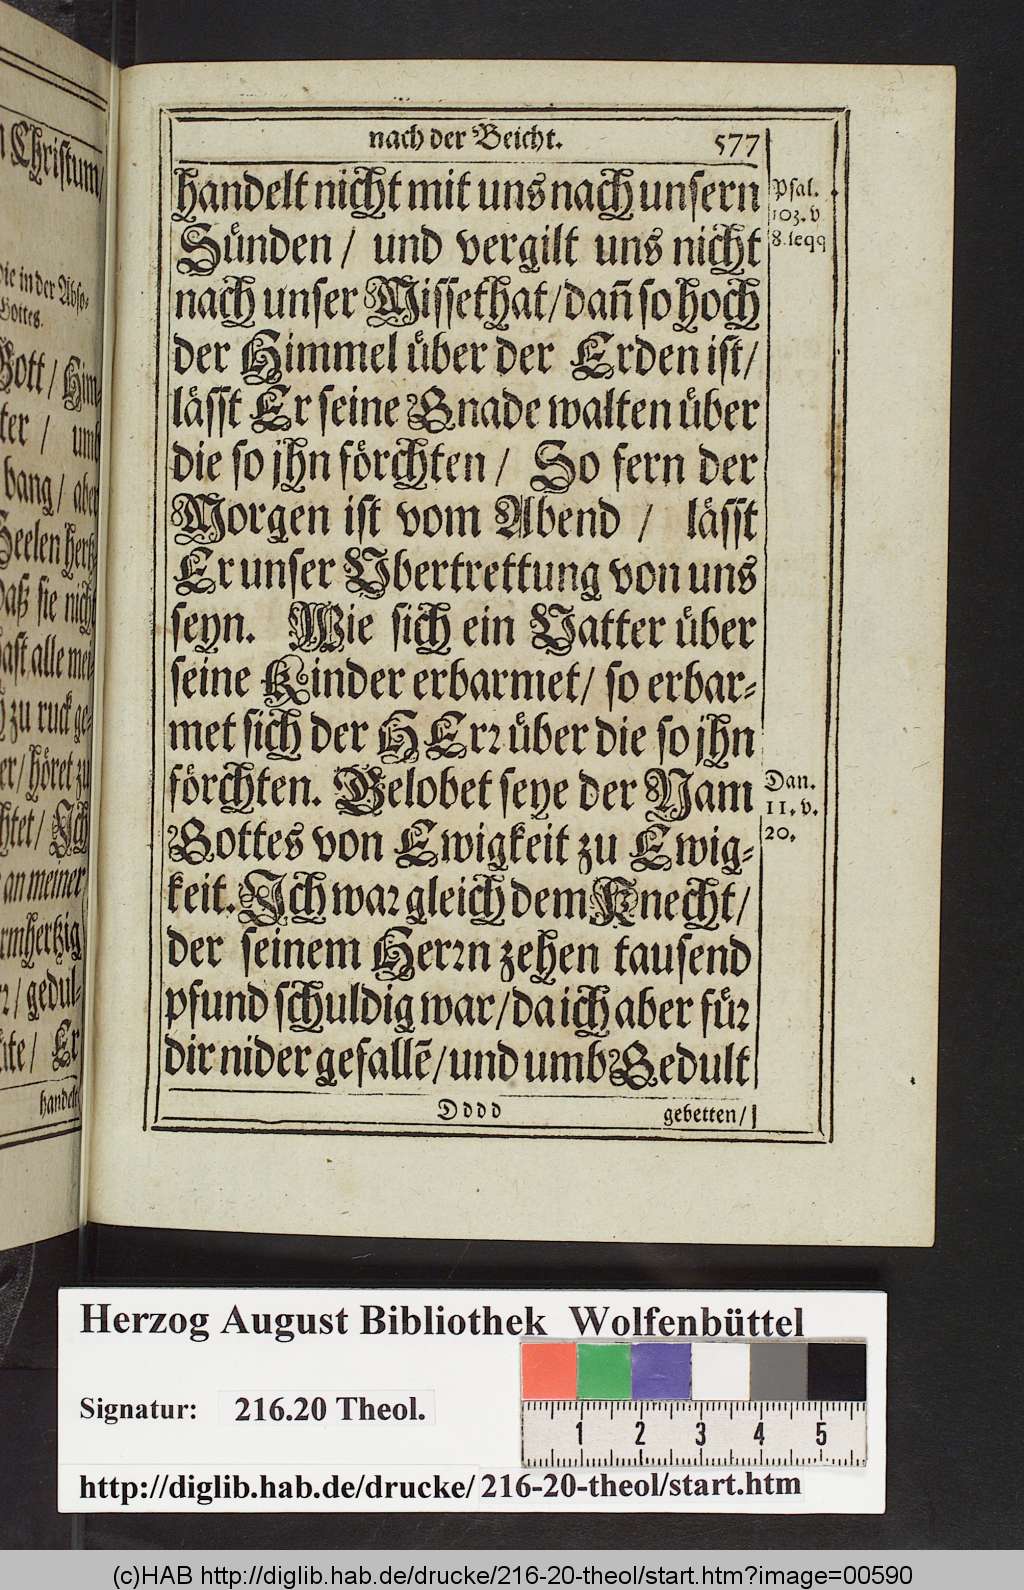 n Christum/
die in der Abso-
Gottes.
Gott / Him-
ter / umb
bang / aber
Seelen hertz-
daß sie nicht
hast alle mei-
zu ruck ge-
er / höret zu
chtet / Ich
an meiner
rmhertzig
/ gedul-
Er
handelt
nach der Beicht. 577
handelt nicht mit uns nach unsern
Sünden / und vergilt uns nicht
nach unser Missethat/dañ so hoch
der Himmel über der Erden ist/
lässt Er seine Gnade walten über
die so jhn förchten / So fern der
Morgen ist vom Abend / lässt
Er unser Ubertrettung von uns
seyn. Wie sich ein Vatter über
seine Kinder erbarmet/ so erbar-
met sich der HErr über die so jhn
förchten. Gelobet seye der Nam
Gottes von Ewigkeit zu Ewig-
keit. Ich war gleich dem Knecht/
der seinem Herrn zehen tausend
pfund schuldig war/da ich aber für
dir nider gefallẽ/und umb Gedult
Psal.
103. v
8. seqq
Dan.
11. v.
20.
Dddd gebetten/
Herzog August Bibliothek Wolfenbüttel
Signatur: 216.20 Theol.
1 2 3 4 5
http://diglib.hab.de/drucke/ 216-20-theol/start.htm
(c)HAB http://diglib.hab.de/drucke/216-20-theol/start.htm?image=00590